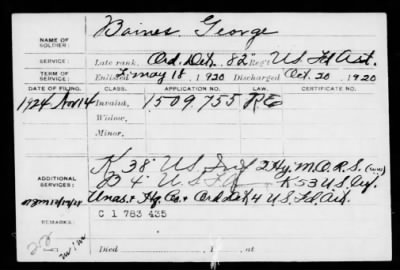 NAME OF SOLDIER: Baines George
SERVICE: Late rank, Ord. Det. 82" Reg't US Fd Art.
TERM OF SERVICE: Enlisted May 18, 1920 Discharged Oct. 20, 1920
DATE OF FILING. CLASS. APPLICATION NO. LAW. CERTIFICATE NO.
1924 Nov 14 Invalid, 1509,755
Widow,
Minor,
ADDITIONAL SERVICES: K 38" US Inf
B 4" US K 53 U.S. Inf.
Unas. & Hq. Co. & Ord Det 4 U.S. Fd Art.
REMARKS: C 1 783 435
Died , at